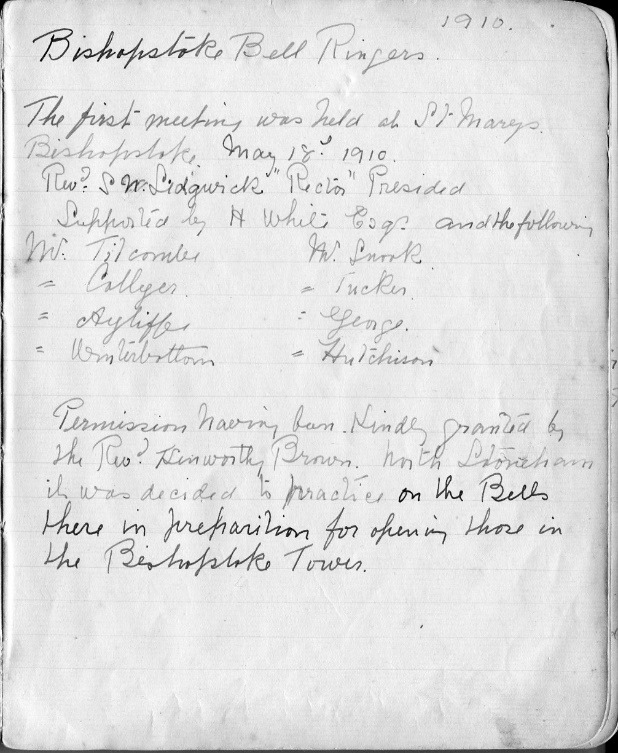 1910.
Bishopstoke Bell Ringers.
The first meeting was held at St Marys.
Bishopstoke. May 18th 1910.
Revd S W. Sidgwick "Rector" Presided
Supported by H White Esqr and the following
Mr. Titcombe Mr. Snook
" Collyer. " Tucker.
" Ayliffe " George.
" Winterbottom " Hutchison
Permission having been Kindly granted by
the Revd Kenworthy Brown. North Stoneham
it was decided to practice on the Bells
there in preparition for opening those in
the Bishopstoke Tower.